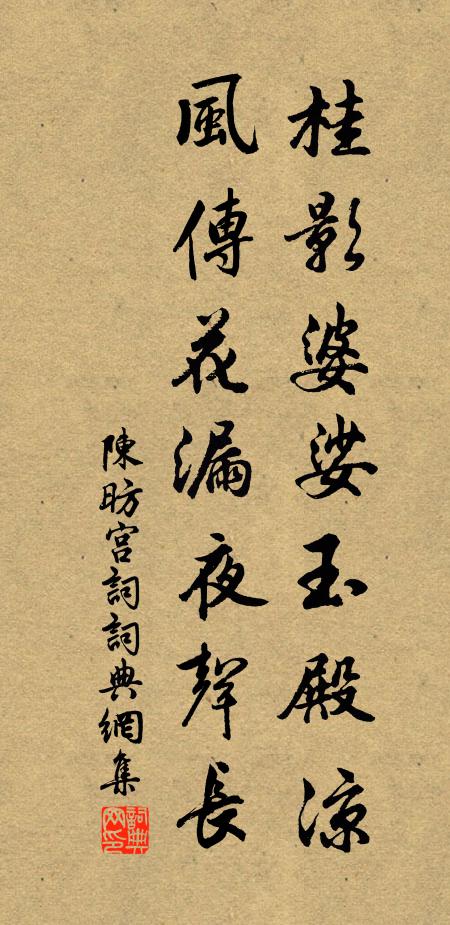 桂影婆娑玉殿涼
風傳花漏夜聲長
陳昉宮詞詞典網集
詞典网印